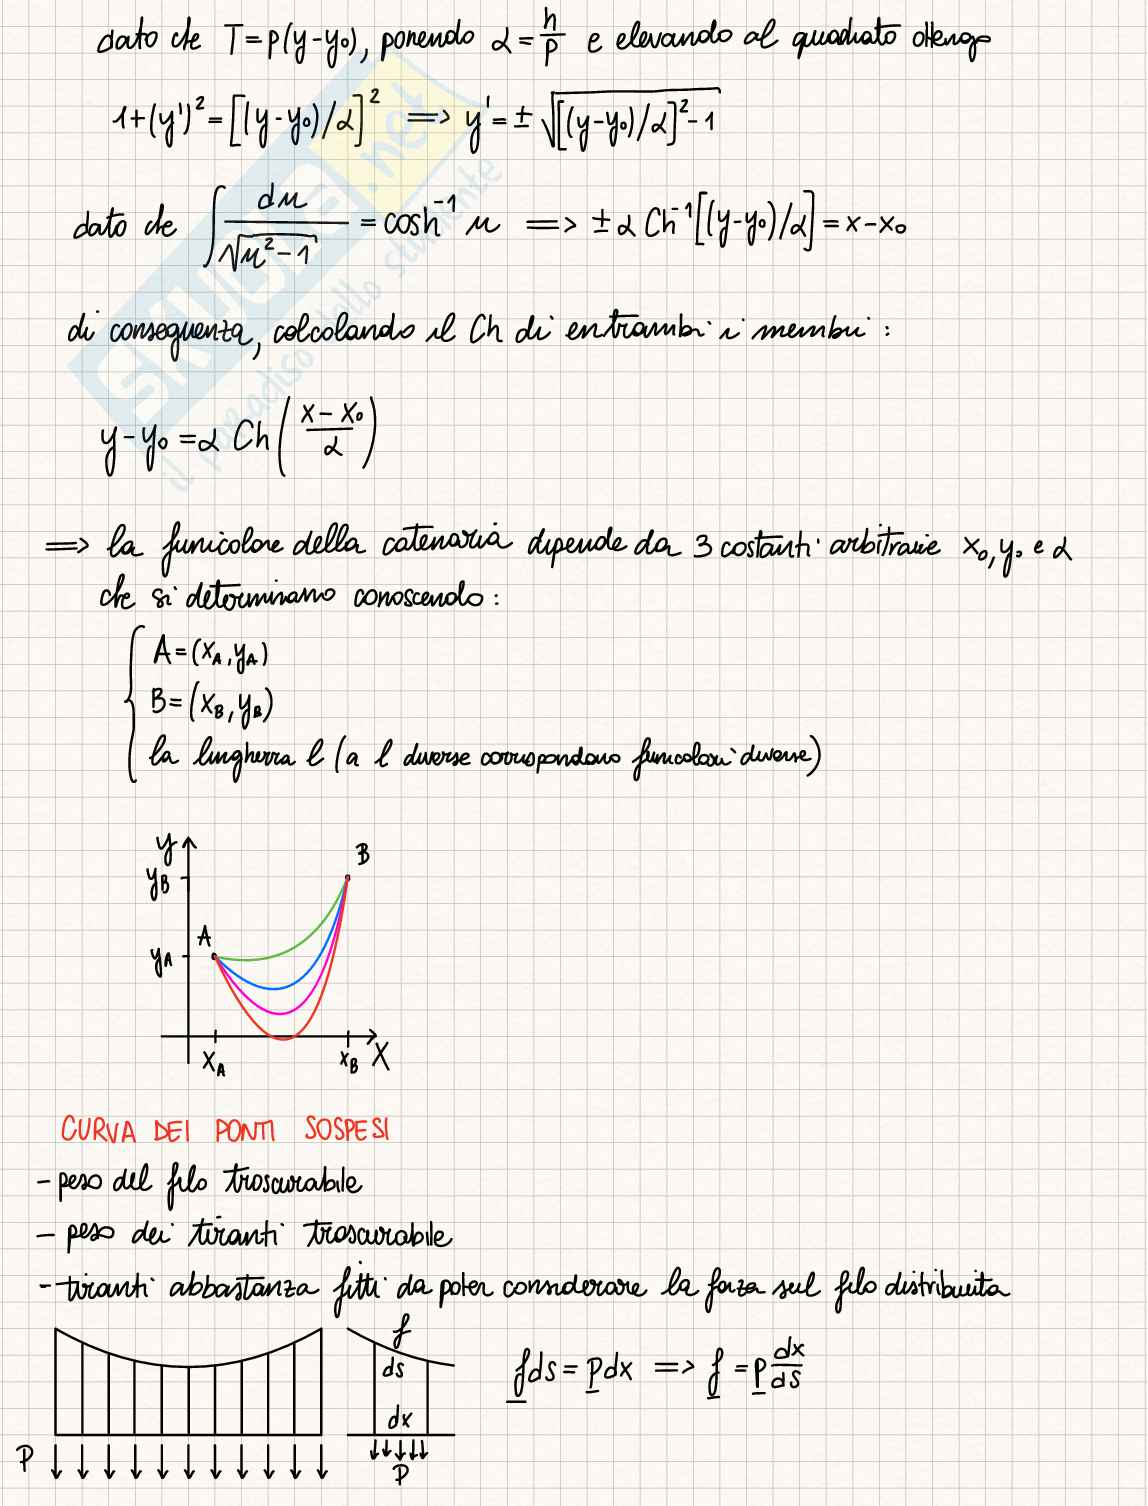 dato che T=p(y-y₀), ponendo α=h/p e elevando al quadrato ottengo
1+(y')²=[(y-y₀)/α]² ⟹ y'=±√[(y-y₀)/α]²-1
dato che ∫du/√u²-1 = cosh⁻¹ u ⟹ ±α Ch⁻¹[(y-y₀)/α]=x-x₀
di conseguenza, calcolando il Ch di entrambi i membri:
y-y₀=α Ch(x-x₀/α)
⟹ la funicolare della catenaria dipende da 3 costanti arbitrarie x₀,y₀ e α
che si determinano conoscendo:
A=(x_A,y_A)
B=(x_B,y_B)
la lunghezza l (a l diverse corrispondono funicolari diverse)
y
B
y_B
A
y_A
x_A
x_B
X
CURVA DEI PONTI SOSPESI
- peso del filo trascurabile
- peso dei tiranti trascurabile
- tiranti abbastanza fitti da poter considerare la forza sul filo distribuita
f
ds
dx
P
P
f ds = p dx ⟹ f = p dx/ds
SKUOLA.net
il paradiso dello studente